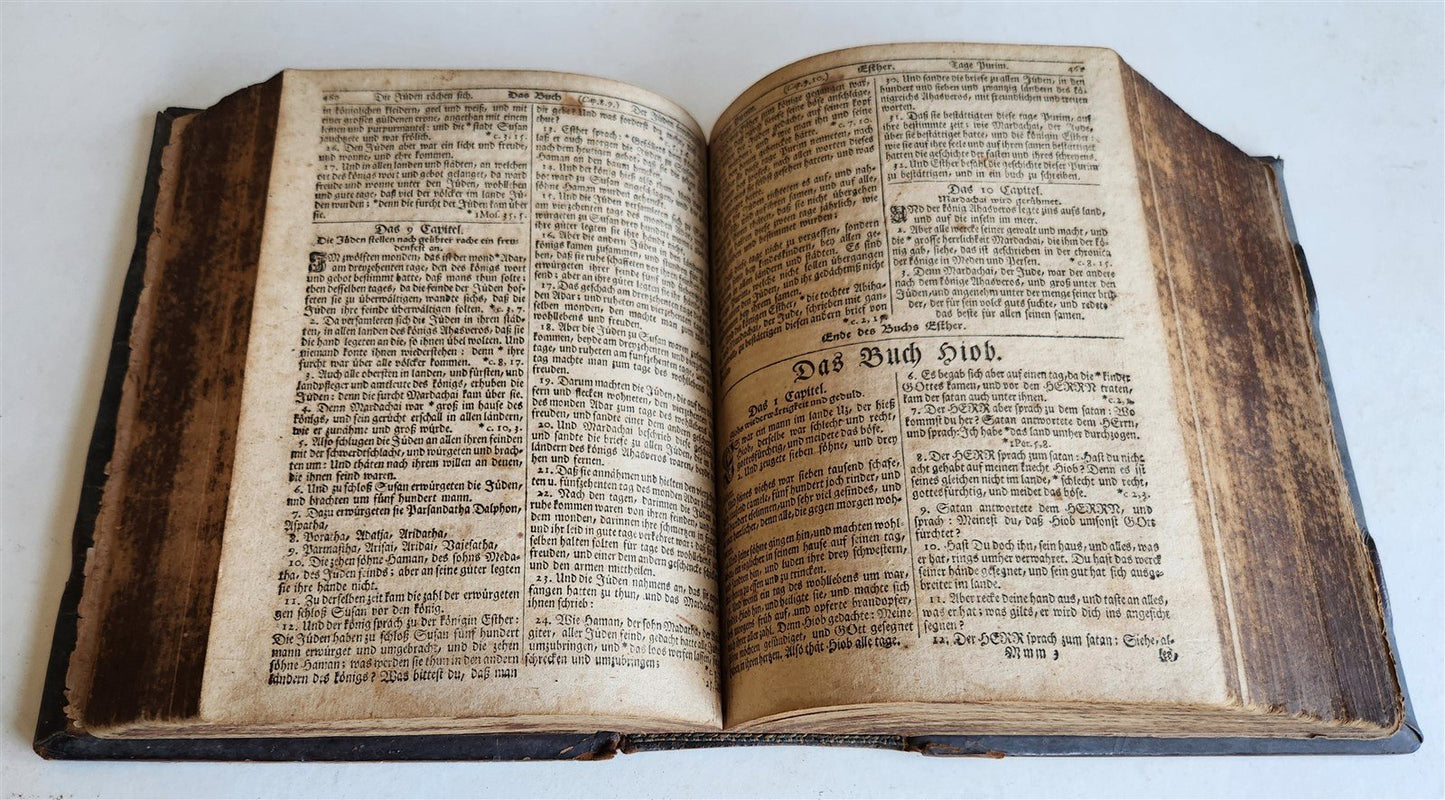 460 Die Jüden rächen sich. Das Buch (Cap. 8. 9.) Der Jüden
in königlichen kleidern, geel und weiß, und mit
einer grossen güldenen crone, angethan mit einem
leinen und purpurmantel: und die *stadt Susan
jauchzete und war frölich. *c. 3, 15.
16. Den Jüden aber war ein licht und freude,
und wonne, und ehre kommen.
17. Und in allen landen und städten, an welchen
ort des königs wort und gebot gelanget, da ward
freude und wonne unter den Jüden, wohlleben
und gute tage; daß viel der völcker im lande Jü-
den wurden; *denn die furcht der Jüden kam über
sie. * 1 Mos. 35, 5.
Das 9 Capitel.
Die Jüden stellen nach geübter rache ein freu-
denfest an.
IM zwölften monden, das ist der mond *Adar
am dreyzehenten tage, den des königs wort
und gebot bestimmt hatte, daß mans thun solte;
eben desselben tages, da die feinde der Jüden hof-
feten sie zu überwältigen, wandte sichs, daß die
Jüden ihre feinde überwältigen solten. *c. 3, 7.
2. Da versamleten sich die Jüden in ihren städ-
ten, in allen landen des königs Ahasveros, daß sie
die hand legeten an die, so ihnen übel wolten. Und
niemand konte ihnen wiederstehen: denn * ihre
furcht war über alle völcker kommen. *c. 8. 17.
3. Auch alle obersten in landen, und fürsten, und
landpfleger und amtleute des königs, erhuben die
Jüden: denn die furcht Mardachai kam über sie.
4. Denn Mardachai war * groß im hause des
königs, und sein gerücht erschall in allen ländern,
wie er zunähme und groß würde. *c. 10, 3.
5. Also schlugen die Jüden an allen ihren feinden
mit der schwerdtschlacht, und würgeten und brach-
ten um: Und thäten nach ihrem willen an denen,
die ihnen feind waren.
6. Und zu schloß Susan erwürgeten die Jüden,
und brachten um fünf hundert mann.
7. Dazu erwürgeten sie Parsandatha Dalphon,
Aspatha,
8. Poratha, Adalja, Aridatha,
9. Parmastha, Arisai, Aridai, Vajesatha,
10. Die zehen söhne Haman, des sohns Meda-
tha, des Jüden feinds; aber an seine güter legten
sie ihre hände nicht.
11. Zu derselben zeit kam die zahl der erwürgeten
gen schloß Susan vor den könig.
12. Und der könig sprach zu der königin Esther:
Die Jüden haben zu schloß Susan fünf hundert
mann erwürget und umgebracht, und die zehen
söhne Haman; was werden sie thun in den andern
ländern des königs? Was bittest du, daß man
dir gebe? Und was forderst du
thue?
13. Esther sprach: *Gefällets
laß er auch morgen die
nach dem heutigen
Haman an den baum
14. Und der könig hieß
söhne Haman wurden gehänget.
15. Und die Jüden versamleten sich
am vierzehenten tage des monden
würgeten zu Susan drey hundert
ihre güter legten sie ihre hände
16. Aber die andern Jüden in den
königs kamen zusammen, und stunden
ben, daß sie ruhe schaffeten vor ihren
erwürgeten ihrer feinde fünf und
send; aber an ihre güter legten sie ihre
17. Das geschach am dreyzehenten tage
den Adar: und ruheten am vierzehenten
selben monden, den machte man zum
wohllebens und freuden.
18. Aber die Jüden zu Susan waren
kommen, beyde am dreyzehenten und
tage, und ruheten am funfzehenten tage
tag machte man zum tage des wohllebens
freuden.
19. Darum machten die Jüden, die auf den
fern und flecken wohneten, den vierzehenten
des monden Adar zum tage des wohllebens
freuden, und sandte einer dem andern geschencke
20. Und Mardachai beschrieb diese
und sandte die briefe zu allen Jüden,
ländern des königs Ahasveros waren, beyde
hen und fernen.
21. Daß sie annähmen und hielten den vierzehen-
ten u. funfzehenten tag des monden Adar
22. Nach den tagen, darinnen die
ruhe kommen waren von ihren feinden, und
dem monden, darinnen ihre schmerzen in
und ihr leid in gute tage verkehret war; daß
selben halten solten für tage des wohllebens
freuden, und einer dem andern geschencke
und den armen mittheilen.
23. Und die Jüden nahmens an, das sie
fangen hatten zu thun, und das Mardachai
ihnen schrieb:
24. Wie Haman, der sohn Madatha, der
giter, aller Jüden feind, gedacht hatte alle
umzubringen, und *das loos werfen lassen,
schrecken und umzubringen;
(Cap. 9. 10.) Esther. Tage Purim. 461
könige gegangen war,
böse anschläge,
auf seinen kopf
man ihn und seine
*c. 7, 10.
nach dem namen
allen worten dieses
gesehen hatten, und was
richteten es auf, und nah-
samen, und auf alle,
daß sie
diese zween tage jährlich, wie
bestimmet wurden;
nicht zu vergessen, sondern
kindeskindern, bey allen ge-
landen und städten. Es sind
welche nicht sollen übergangen
Jüden, und ihr gedächtniß nicht
ihrem samen.
königin Esther, *die tochter Abiha-
Mardachai, der Jude, schrieben mit gan-
zu bestättigen diesen andern brief von
*c. 2, 15.
30. Und sandte die briefe zu allen Jüden, in den
hundert und sieben und zwanzig ländern des kö-
nigreichs Ahasveros, mit freundlichen und treuen
worten.
31. Daß sie bestättigten diese tage Purim, auf
ihre bestimmte zeit; wie Mardachai, der Jude,
über sie bestättiget hatte, und die königin Esther;
wie sie auf ihre seele und auf ihren samen bestättiget
hatten die geschichte der fasten und ihres schreyens.
32. Und Esther befahl die geschichte dieser Purim
zu bestättigen, und in ein buch zu schreiben.
Das 10 Capitel.
Mardachai wird gerühmet.
UNd der könig Ahasveros legte zins aufs land,
und auf die inseln im meer.
2. Aber alle wercke seiner gewalt und macht, und
die * grosse herrlichkeit Mardachai, die ihm der kö-
nig gab, siehe, das ist geschrieben in der chronica
der könige in Meden und Persen. *c. 8. 15.
3. Denn Mardachai, der Jude, war der andere
nach dem könige Ahasveros, und groß unter den
Jüden, und angenehm unter der menge seiner brü-
der, der für sein volck gutes suchte, und redete
das beste für allen seinen samen.
Ende des Buchs Esther.
Das Buch Hiob.
Das 1 Capitel.
Hiobs wiederwärtigkeit und geduld.
ES war ein mann im lande Uz, der hieß
Hiob, derselbe war schlecht und recht,
gottesfürchtig, und meidete das böse.
2. Und zeugete sieben söhne, und drey
seines viehes war sieben tausend schafe,
tausend camele, fünf hundert joch rinder, und
hundert eselinnen, und sehr viel gesindes, und
herrlicher, denn alle, die gegen morgen woh-
seine söhne gingen hin, und machten wohl-
ieglicher in seinem hause auf seinen tag,
sandten hin, und luden ihre drey schwestern,
zu essen und zu trincken.
wenn ein tag des wohllebens um war,
Hiob hin, und heiligte sie, und machte sich
morgens früh auf, und opferte brandopfer,
ihrer aller zahl. Denn Hiob gedachte: Meine
möchten gesündiget, und GOtt gesegnet
in ihren herzen. Also that Hiob alle tage.
6. Es begab sich aber auf einen tag, da die * kinder
GOttes kamen, und vor den HERRN traten,
kam der satan auch unter ihnen. *c. 2, 1.
7. Der HERR aber sprach zu dem satan: Wo
kommst du her? Satan antwortete dem HErrn,
und sprach: Ich habe *das land umher durchzogen.
*1 Pet. 5, 8.
8. Der HERR sprach zum satan: Hast du nicht
acht gehabt auf meinen knecht Hiob? Denn es ist
seines gleichen nicht im lande, * schlecht und recht,
gottesfürchtig, und meidet das böse. *c 2, 3.
9. Satan antwortete dem HERRN, und
sprach: Meinest du, daß Hiob umsonst GOtt
fürchtet?
10. Hast Du doch ihn, sein haus, und alles, was
er hat, rings umher verwahret. Du hast das werck
seiner hände gesegnet, und sein gut hat sich ausge-
breitet im lande.
11. Aber recke deine hand aus, und taste an alles,
was er hat; was gilts, er wird dich ins angesicht
segnen?
12. Der HERR sprach zum satan: Siehe, al-
Mmm 3 les,